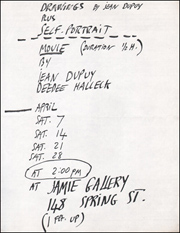 DRAWINGS BY JEAN DUPUY
PLUS
SELF-PORTRAIT
MOVIE (DURATION 1/2 H.)
BY
JEAN DUPUY
DEEDEE HALLECK
APRIL
SAT. 7
SAT. 14
SAT. 21
SAT. 28
AT 2:00 PM
AT JAMIE GALLERY
148 SPRING ST.
(1 FL. UP)